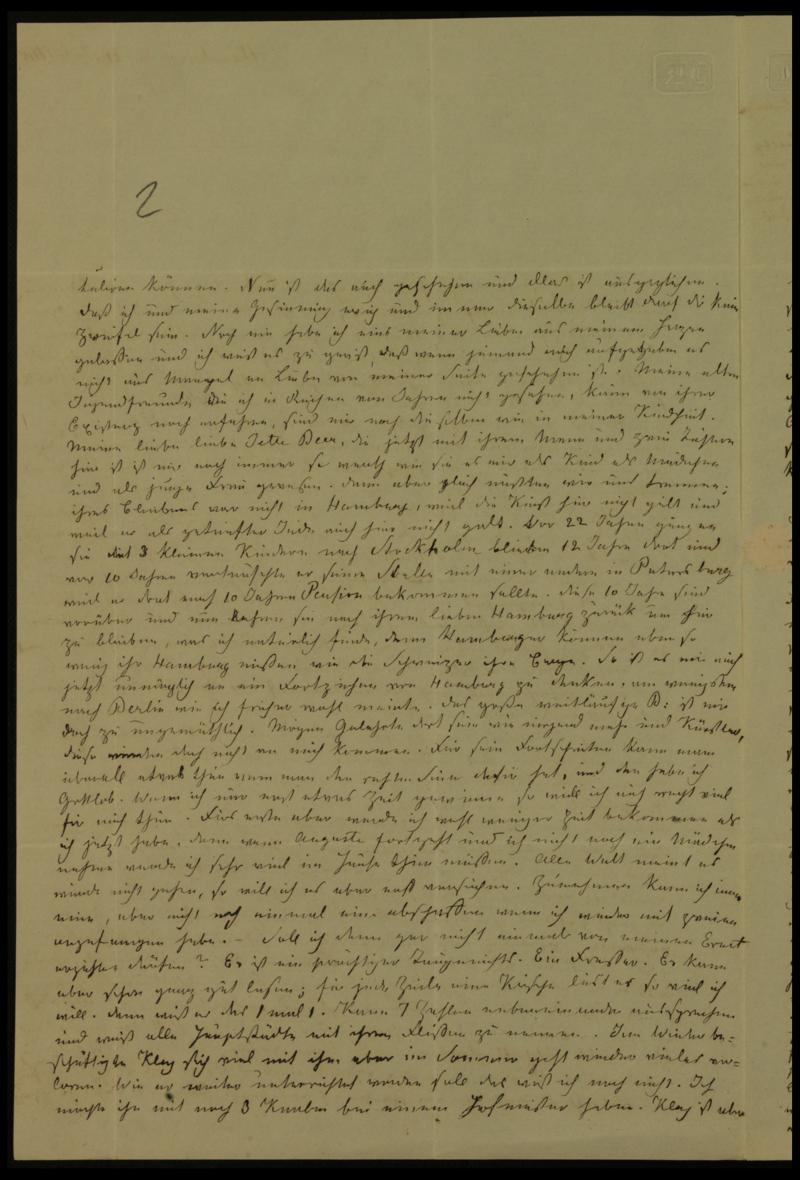 2
können. Nun ist das auch geschehen und alles ist ausgeglichen.
Daß ich und meine Gesinnung ewig und immer dieselbe bleibt darf dir kein
Zweifel sein. Noch nie habe ich eins meiner Lieben aus meinem Herzen
gelassen und ich weis es zu gewiß, daß wenn jemand mich aufgegeben es
nicht aus Mangel an Liebe von meiner Seite geschehen ist. Meine alten
Jugendfreunde die ich in Reihen von Jahren nicht gesehen, kaum von ihrer
Existenz noch erfahren, sind mir noch dieselben wie in meiner Kindheit.
Meine liebe liebe Jette Beer, die jetzt mit ihrem Mann und zwei Töchtern
hier ist ist mir noch immer so werth wie sie es mir als Kind als Mädchen
und als junge Frau gewesen. Dann aber gleich mußten wir uns trennen;
ihres Bleibens war nicht in Hamburg, weil die Kunst hier nicht gilt und
weil er als getaufter Jude auch hier nicht galt. Vor 22 Jahren gingen
sie mit 3 kleinen Kindern nach Stockholm blieben 12 Jahre dort und
vor 10 Jahren vertauschte er seine Stelle mit einer andern in Petersburg
weil er dort nach 10 Jahren Pension bekommen sollte. Diese 10 Jahre sind
vorüber und nun kehren sie nach ihrem lieben Hamburg zurück um hier
zu bleiben, was ich natürlich finde, denn Hamburger können eben so
wenig ihr Hamburg missen wie die Schweizer ihre Berge. So ist es mir auch
jetzt unmöglich an ein Fortziehen von Hamburg zu denken, am wenigsten
nach Berlin wie ich früher wohl meinte. Das große weitläuftige B: ist mir
doch zu ungemüthlich. Mögen Gelehrte dort sein wie nirgend mehr und Künstler,
diese würden doch nicht an mich kommen. Für sein Fortschreiten kann man
überall etwas thun wenn man den rechten Sinn dafür hat, und den habe ich
Gottlob. Wenn ich nur erst etwas Zeit gewinne so will ich auch recht viel
für mich thun. Fürs erste aber werde ich wohl weniger Zeit bekommen als
ich jetzt habe, denn wenn Auguste fortgeht und ich nicht noch ein Mädchen
nehme werde ich sehr viel im Hause thun müssen. Alle Welt meint es
würde nicht gehen, so will ich es aber erst versuchen. Zunehmen kann ich immer
eine, aber nicht noch einmal eine abschaffen wenn ich wieder mit zweien
angefangen habe. – Soll ich denn gar nicht einmal von meinem Ernst
erzählen dürfen? Er ist ein prächtiger Taugenichts. Ein Fresser. Er kann
aber schon ganz gut lesen; für jede Zeile eine Kirsche liest er so viel ich
will. Dann weiß er das 1 mal 1. Kann 7 Zahlen nebeneinander aussprechen
und weiß alle Hauptstädte mit ihren Flüssen zu nennen. Im Winter be=
schäftigte Klag sich viel mit ihm aber im Sommer geht wieder vieles ver=
loren. Wie er weiter unterrichtet werden soll das weiß ich noch nicht. Ich
möchte ihn mit noch 3 Knaben bei einem Hofmeister haben. Klag ist aber